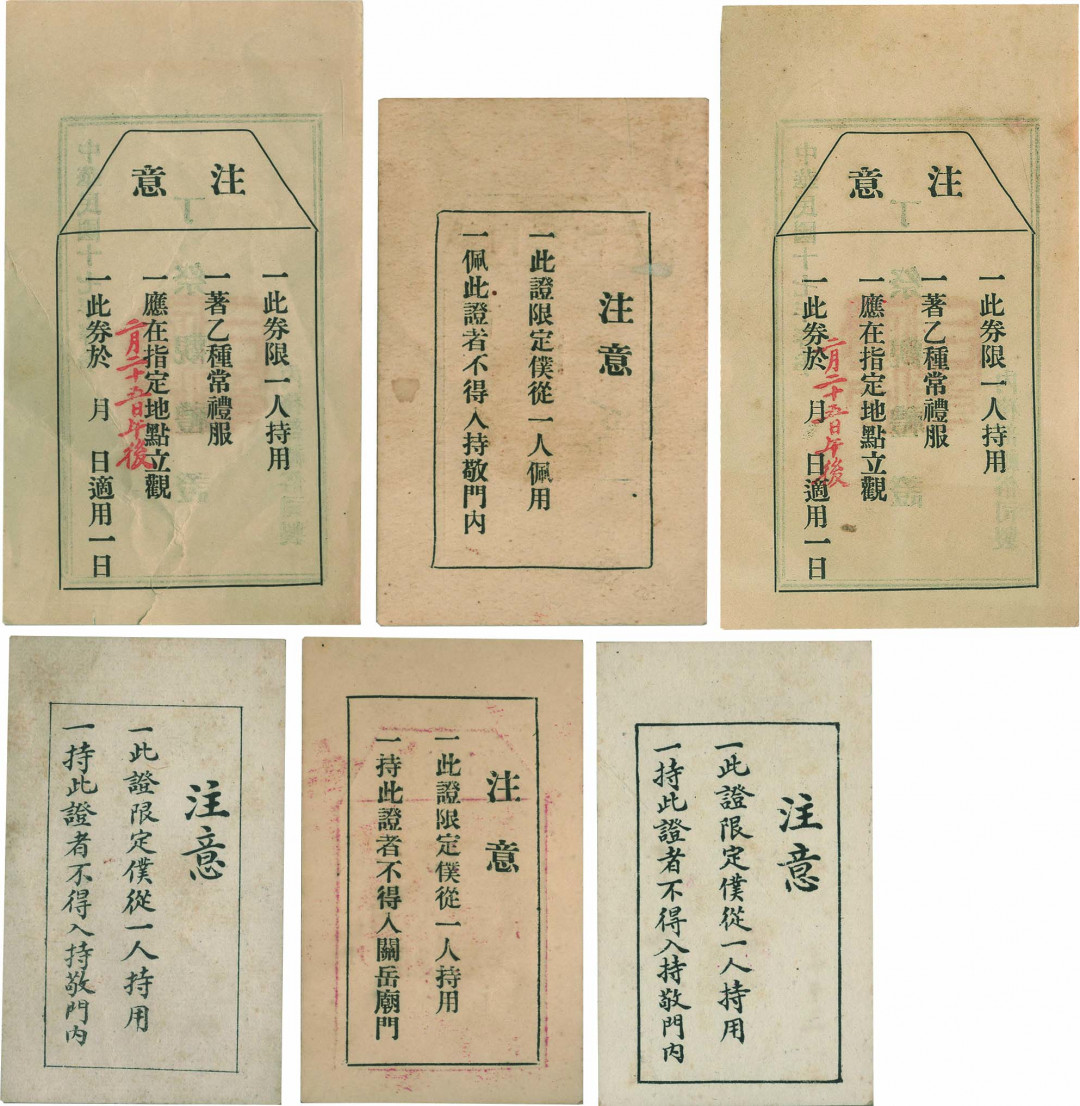 注意
一此券限一人持用
一著乙種常禮服
一應在指定地點立觀
二月二十五日午後
一此券於 月 日適用一日
注意
一此證限定僕從一人佩用
一佩此證者不得入持敬門內
注意
一此券限一人持用
一著乙種常禮服
一應在指定地點立觀
二月二十五日午後
一此券於 月 日適用一日
注意
一此證限定僕從一人持用
一持此證者不得入持敬門內
注意
一此證限定僕從一人持用
一持此證者不得入關岳廟門
注意
一此證限定僕從一人持用
一持此證者不得入持敬門內